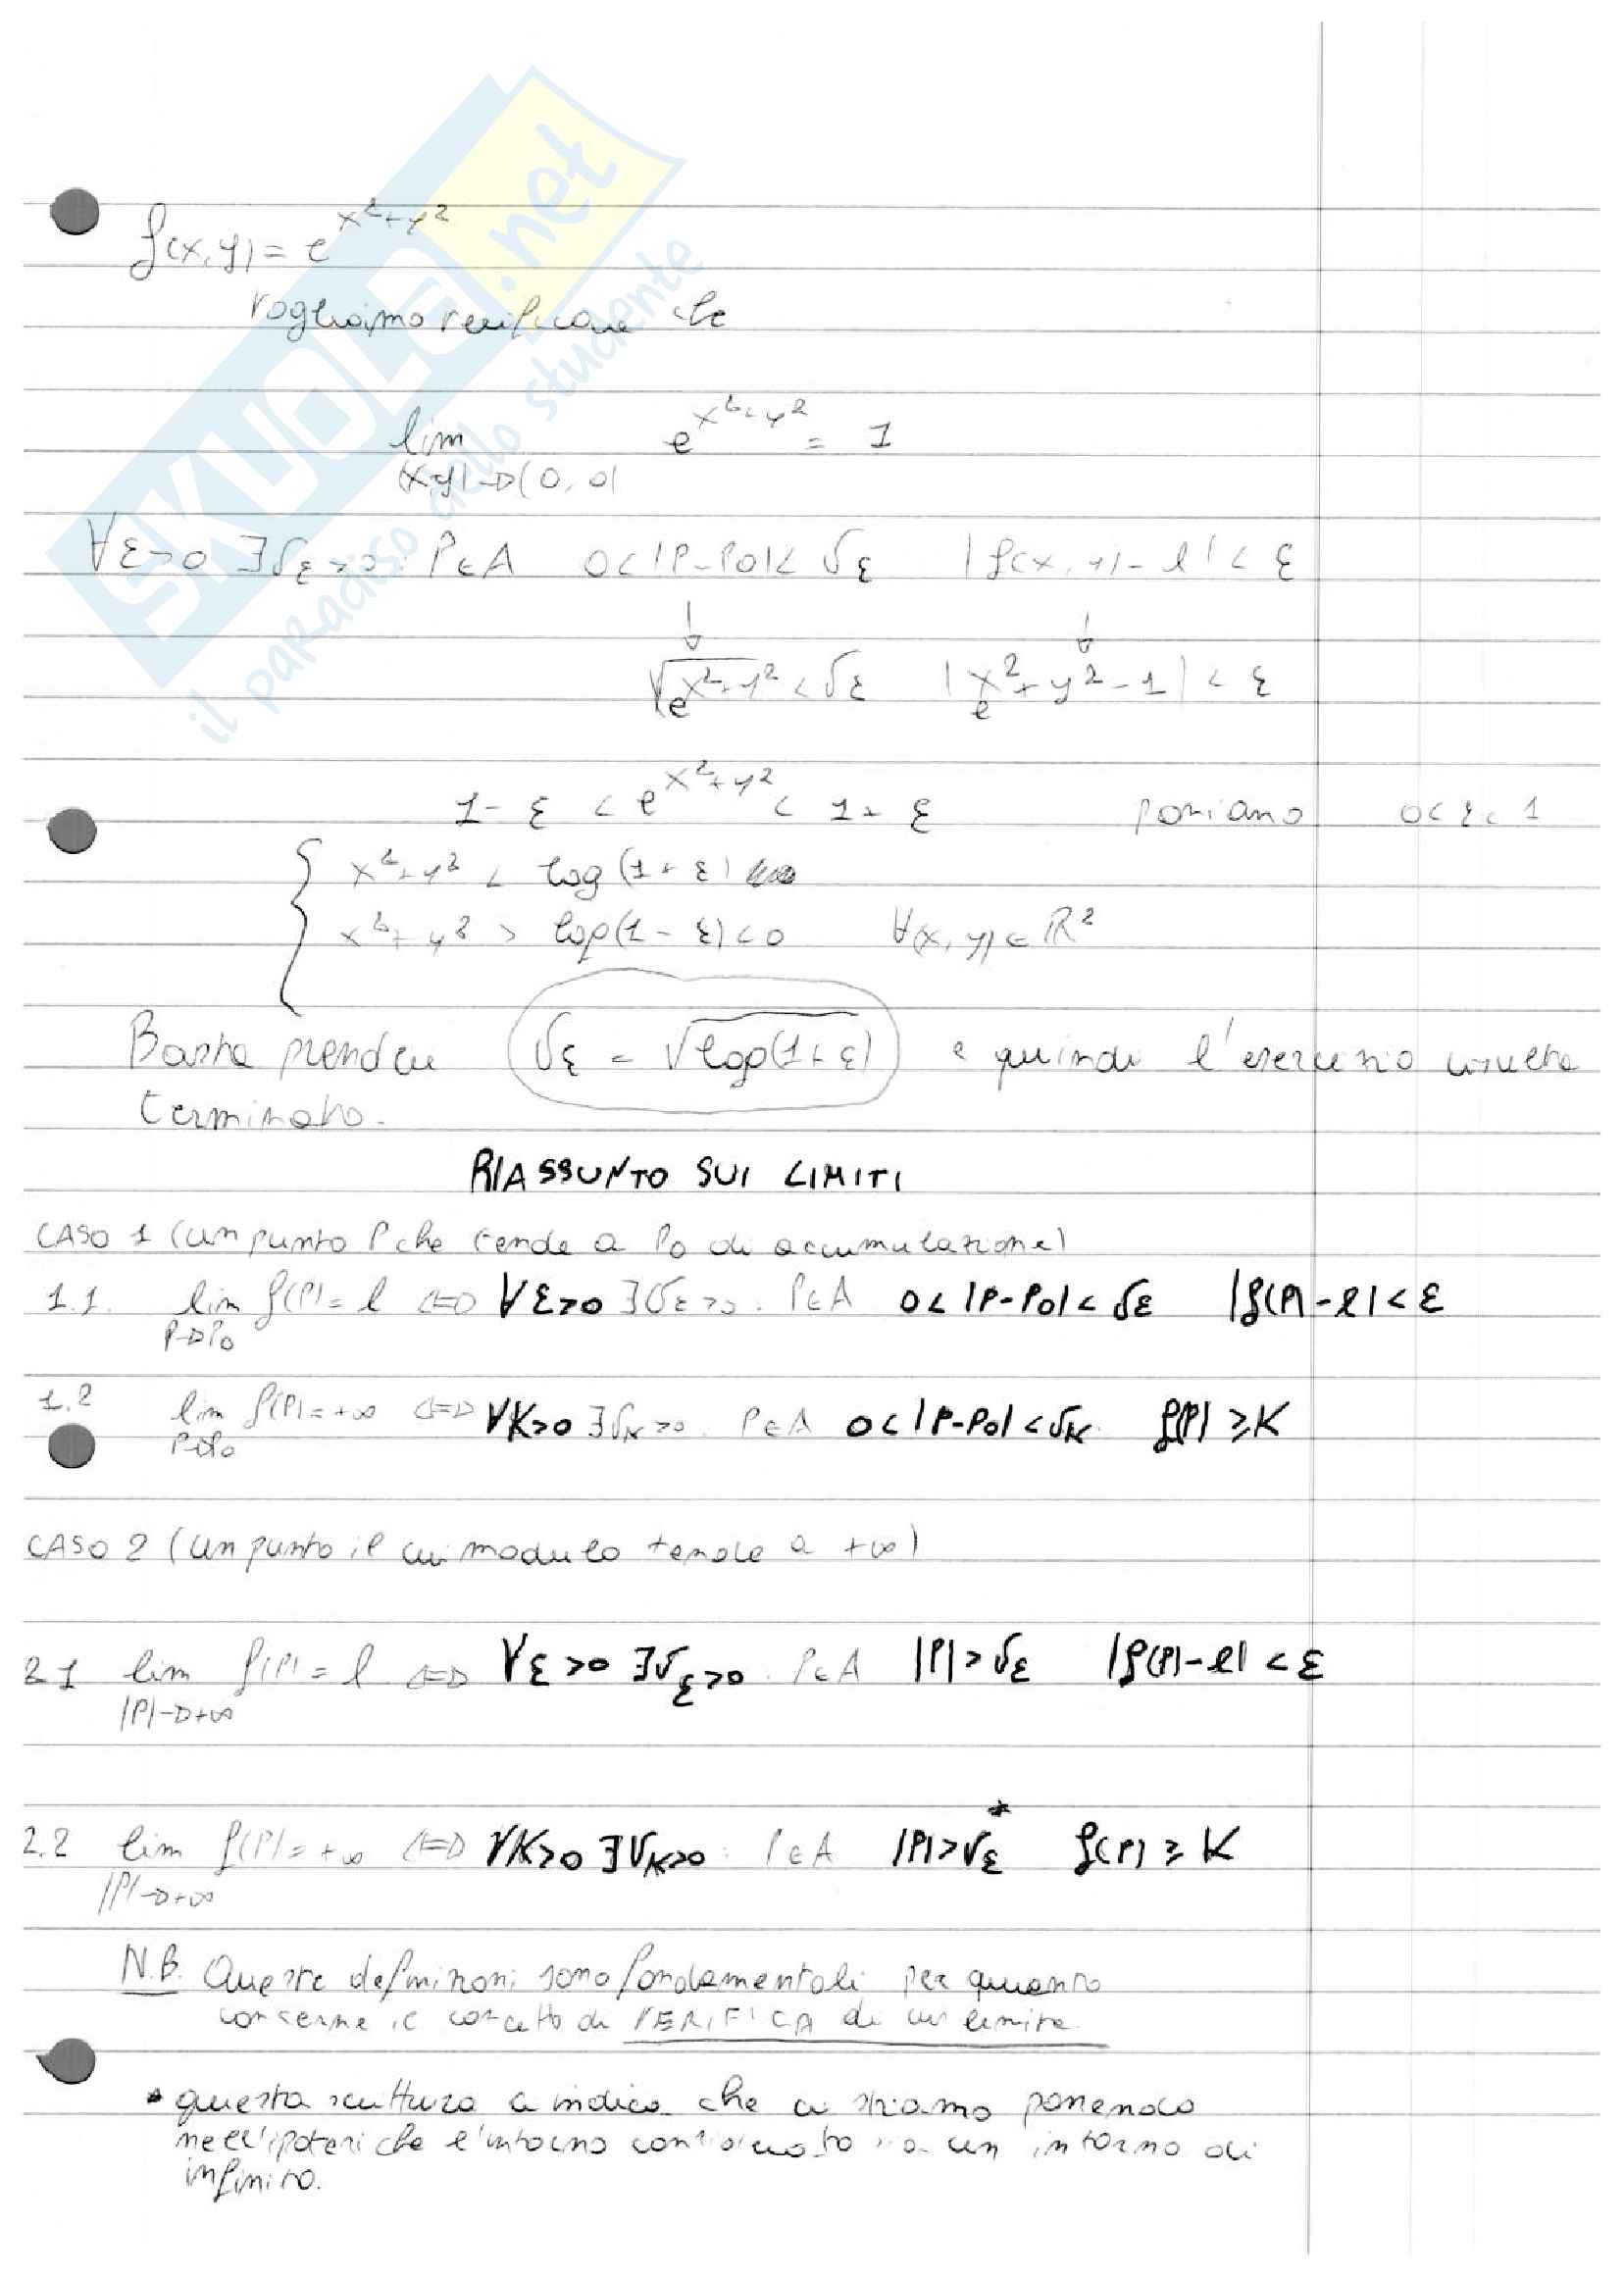 SKUOLA.net
il paradiso dello studente
f(x,y) = e^{x²+y²}
vogliamo verificare che
lim e^{x²+y²} = 1
(x,y)→(0,0)
∀ε>0 ∃δε>0: P∈A 0<|P-P0|<δε |f(x,y)-l|<ε
↓ ↓
√e^{x²+y²}<δε |e^{x²+y²}-1|<ε
1-ε < e^{x²+y²} < 1+ε poniamo 0<ε<1
{ x²+y² < log(1+ε)
x²+y² > log(1-ε)<0 ∀(x,y)∈ℝ²
Basta prendere δε = √log(1+ε) e quindi l'esercizio risulta
terminato.
RIASSUNTO SUI LIMITI
CASO 1 (un punto P che tende a P0 di accumulazione)
1.1. lim f(P)=l ⇔ ∀ε>0 ∃δε>0: P∈A 0<|P-P0|<δε |f(P)-l|<ε
P→P0
1.2 lim f(P)=+∞ ⇔ ∀K>0 ∃δK>0: P∈A 0<|P-P0|<δK f(P)≥K
P→P0
CASO 2 (un punto il cui modulo tende a +∞)
2.1 lim f(P)=l ⇔ ∀ε>0 ∃δε>0: P∈A |P|>δε |f(P)-l|<ε
|P|→+∞
2.2 lim f(P)=+∞ ⇔ ∀K>0 ∃δK>0: P∈A |P|>δε* f(P)≥K
|P|→+∞
N.B. Queste definizioni sono fondamentali per quanto
concerne il concetto di VERIFICA di un limite.
* questa scrittura ci indica che ci stiamo ponendo
nell'ipotesi che l'intorno considerato sia un intorno di
infinito.